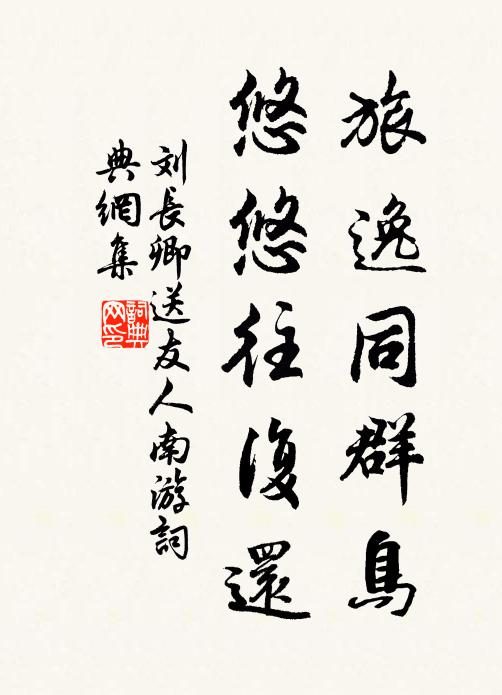 旅逸同群鳥
悠悠往復還
刘長卿送友人南游詞
典網集
詞典
网印